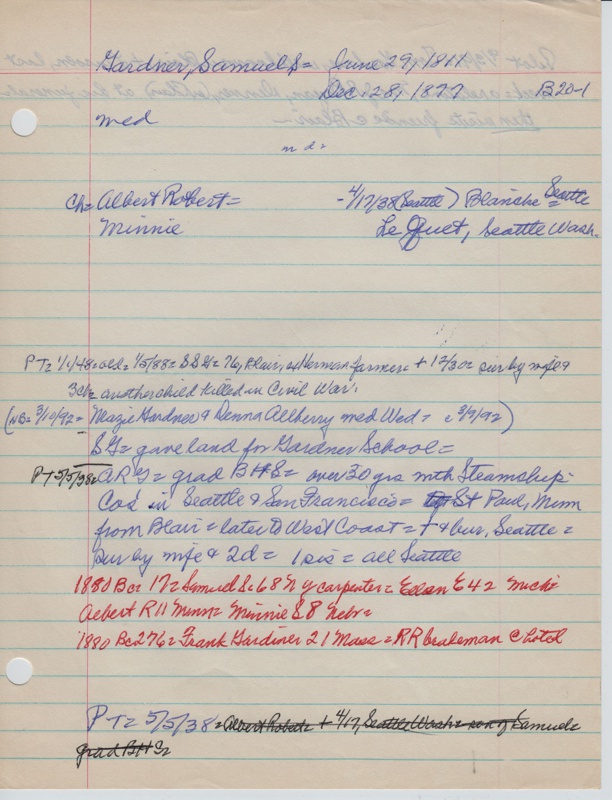 Gardner, Samuel S= June 29, 1811
Dec. 28, 1877 B20-1
med
n d =
Ch= Albert Robert= - 4/17/38 (Seattle) Blanche = Seattle
Minnie Le Quet, Seattle Wash.
PT= 1/1/48= old= 1/5/88= SSG= 76, Blair, = farmer + 12/30= sur by wife &
3ch= another child killed in Civil War.
(NB= 3/10/92= Mazie Gardner & Denna Allberry med Wed = c 3/9/92)
SG= gave land for Gardner School=
PT 5/5/38= ARG= grad BHS= over 30 yrs with Steamship
Cos' in Seattle & San Francisco= St Paul, Minn
from Blair= later to West Coast= + & bur, Seattle=
sur by wife & 2d= 1 sis= all Seattle
1880 Bc= 17= Samuel S. 68 N Y carpenter= Ellen E 42 Mich=
Albert R 11 Minn= Minnie S 8 Nebr=
1880 Bc 276= Frank Gardiner 21 Mass= RR brakeman c hotel
PT= 5/5/38= Albert Robert= + 4/17, Seattle Wash= son of Samuel=
grad BHS=